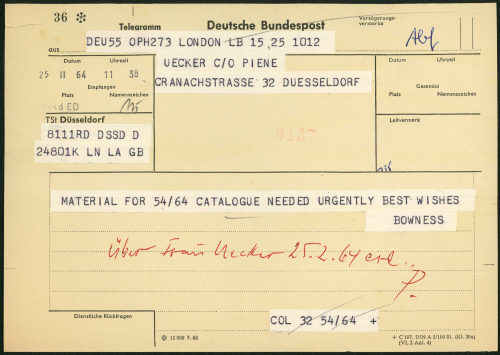 36 ※
Telegramm
Deutsche Bundespost
Verzögerungs-
vermerke
Abf
aus
DEU55 OPH273 LONDON LB 15 25 1012
Datum Uhrzeit
25 II 64 11 38
Empfangen
Platz Namenszeichen
ED
TSt Düsseldorf
8111RD DSSD D
24801K LN LA GB
UECKER C/O PIENE
CRANACHSTRASSE 32 DUESSELDORF
0137
Datum Uhrzeit
Gesendet
Platz Namenszeichen
Leitvermerk
MATERIAL FOR 54/64 CATALOGUE NEEDED URGENTLY BEST WISHES
BOWNESS
Über Frau Uecker 25.2.64
P.
Dienstliche Rückfragen
COL 32 54/64 +
+ C 187, DIN A 5
(VI, 2 Anl. 4)